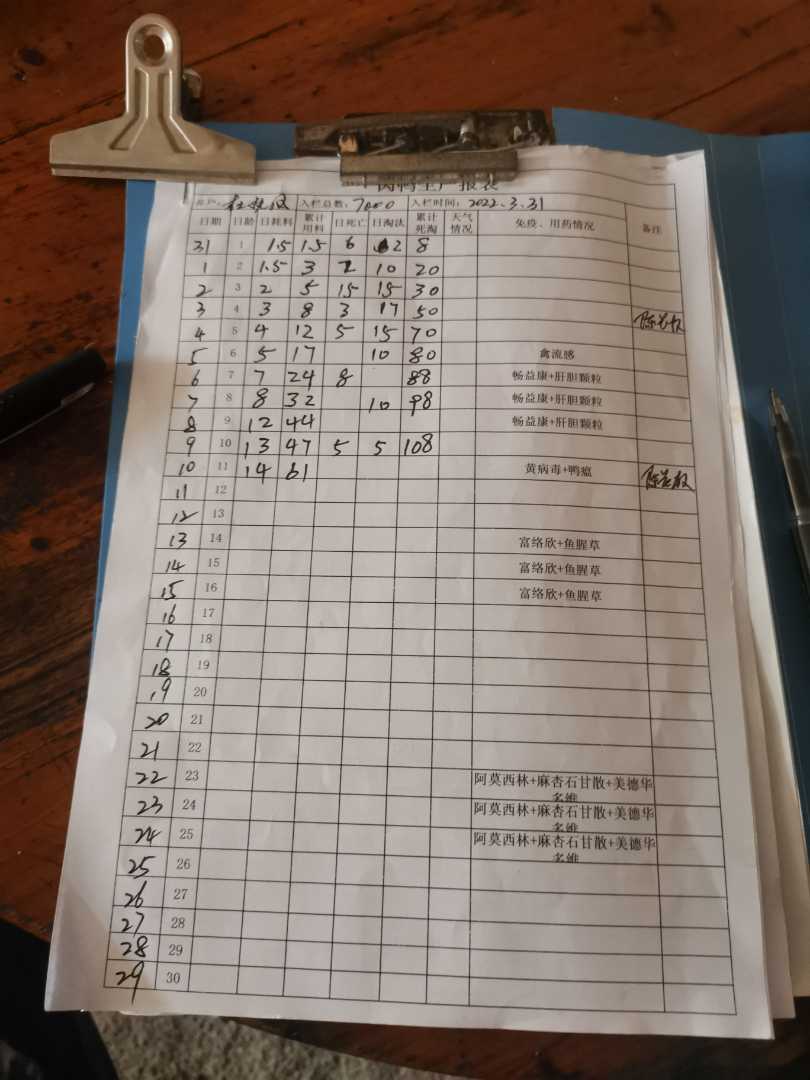 肉鸭生产报表
入栏总数: 7000 入栏时间: 2022.3.31
日期 日龄 日耗料 累计用料 日死亡 日淘汰 累计死淘 天气情况 免疫、用药情况 备注
31 1 1.5 1.5 6 2 8
1 2 1.5 3 2 10 20
2 3 2 5 15 15 30
3 4 3 8 3 17 50
4 5 4 12 5 15 70
5 6 5 17 10 80 禽流感
6 7 7 24 8 88 畅益康+肝胆颗粒
7 8 8 32 10 98 畅益康+肝胆颗粒
8 9 12 44 畅益康+肝胆颗粒
9 10 13 47 5 5 108
10 11 14 61 黄病毒+鸭瘟
11 12
12 13
13 14 富络欣+鱼腥草
14 15 富络欣+鱼腥草
15 16 富络欣+鱼腥草
16 17
17 18
18 19
19 20
20 21
21 22
22 23 阿莫西林+麻杏石甘散+美德华多维
23 24 阿莫西林+麻杏石甘散+美德华多维
24 25 阿莫西林+麻杏石甘散+美德华多维
25 26
26 27
27 28
28 29
29 30